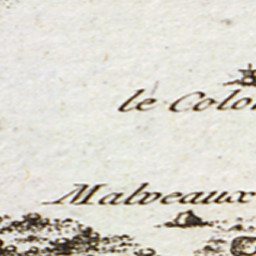 le Colo
Malveaux